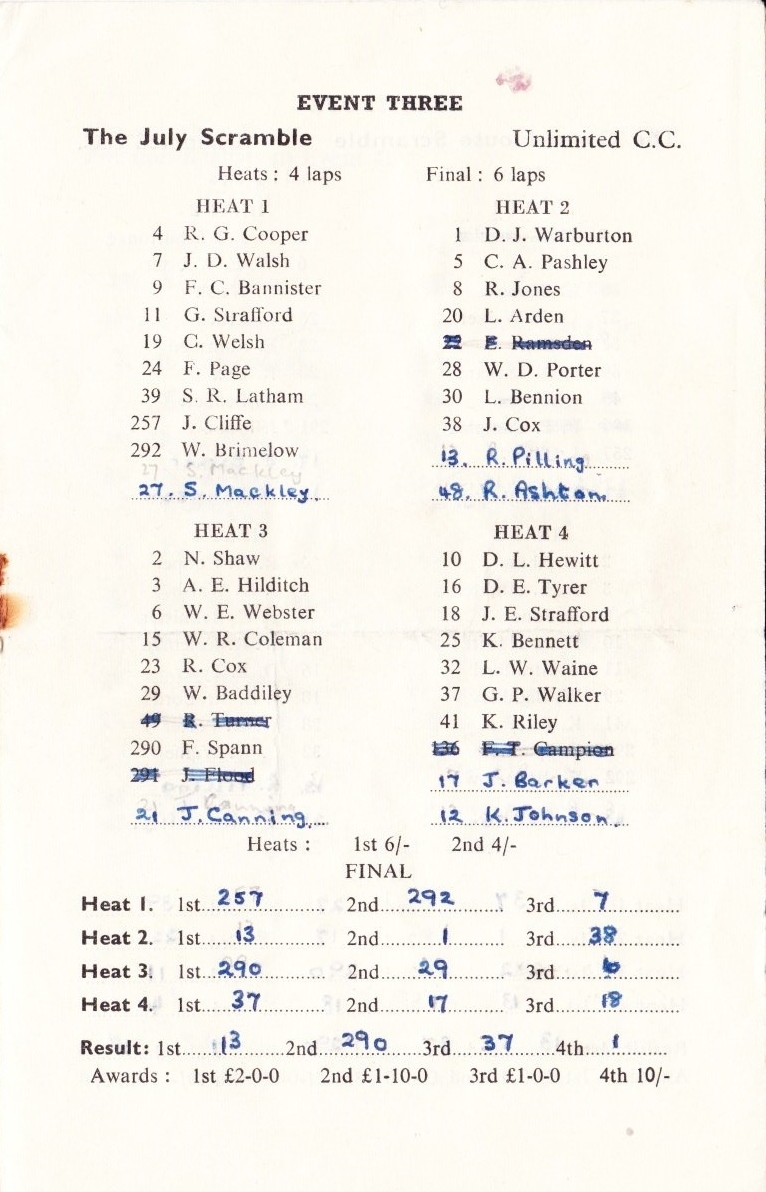 EVENT THREE
The July Scramble Unlimited C.C.
Heats : 4 laps Final : 6 laps
HEAT 1
4 R. G. Cooper
7 J. D. Walsh
9 F. C. Bannister
11 G. Strafford
19 C. Welsh
24 F. Page
39 S. R. Latham
257 J. Cliffe
292 W. Brimelow
27 S. Mackley
27. S. Mackley
HEAT 2
1 D. J. Warburton
5 C. A. Pashley
8 R. Jones
20 L. Arden
22 E. Ramsden
28 W. D. Porter
30 L. Bennion
38 J. Cox
13. R. Pilling
48. R. Ashton
HEAT 3
2 N. Shaw
3 A. E. Hilditch
6 W. E. Webster
15 W. R. Coleman
23 R. Cox
29 W. Baddiley
49 R. Turner
290 F. Spann
291 J. Flood
21 J. Canning
21 J. Canning
HEAT 4
10 D. L. Hewitt
16 D. E. Tyrer
18 J. E. Strafford
25 K. Bennett
32 L. W. Waine
37 G. P. Walker
41 K. Riley
136 F. T. Campion
17 J. Barker
12 K. Johnson
Heats : 1st 6/- 2nd 4/-
FINAL
Heat 1. 1st 257 2nd 292 3rd 7
Heat 2. 1st 13 2nd 1 3rd 38
Heat 3. 1st 290 2nd 29 3rd 6
Heat 4. 1st 37 2nd 17 3rd 18
Result: 1st 13 2nd 290 3rd 37 4th 1
Awards : 1st £2-0-0 2nd £1-10-0 3rd £1-0-0 4th 10/-